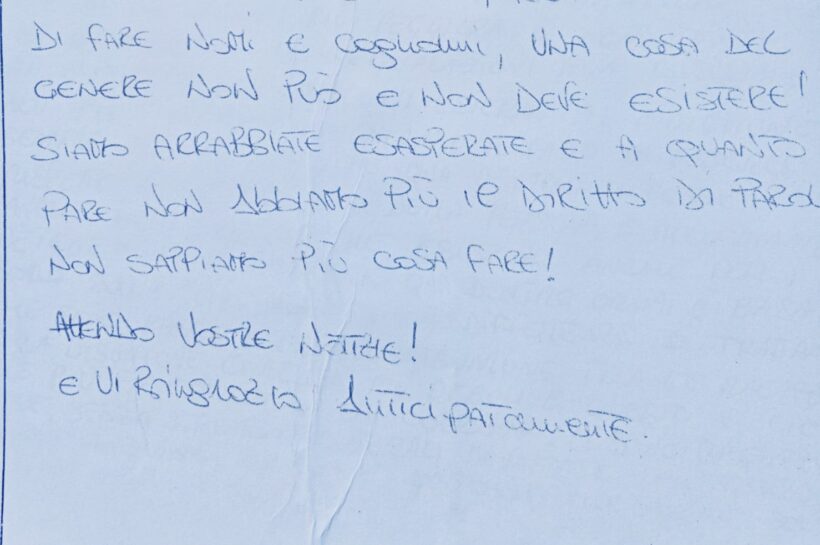 DI FARE NOMI E Cognomi, UNA COSA DEL
GENERE NON PUÒ E NON DEVE ESISTERE!
SIAMO ARRABBIATE ESASPERATE E A QUANTO
PARE NON ABBIAMO PIÙ IL DIRITTO DI PAROL
NON SAPPIAMO PIÙ COSA FARE!
ATTENDO VOSTRE NOTIZIE!
E VI RINGRAZIO ANTICIPATAMENTE.